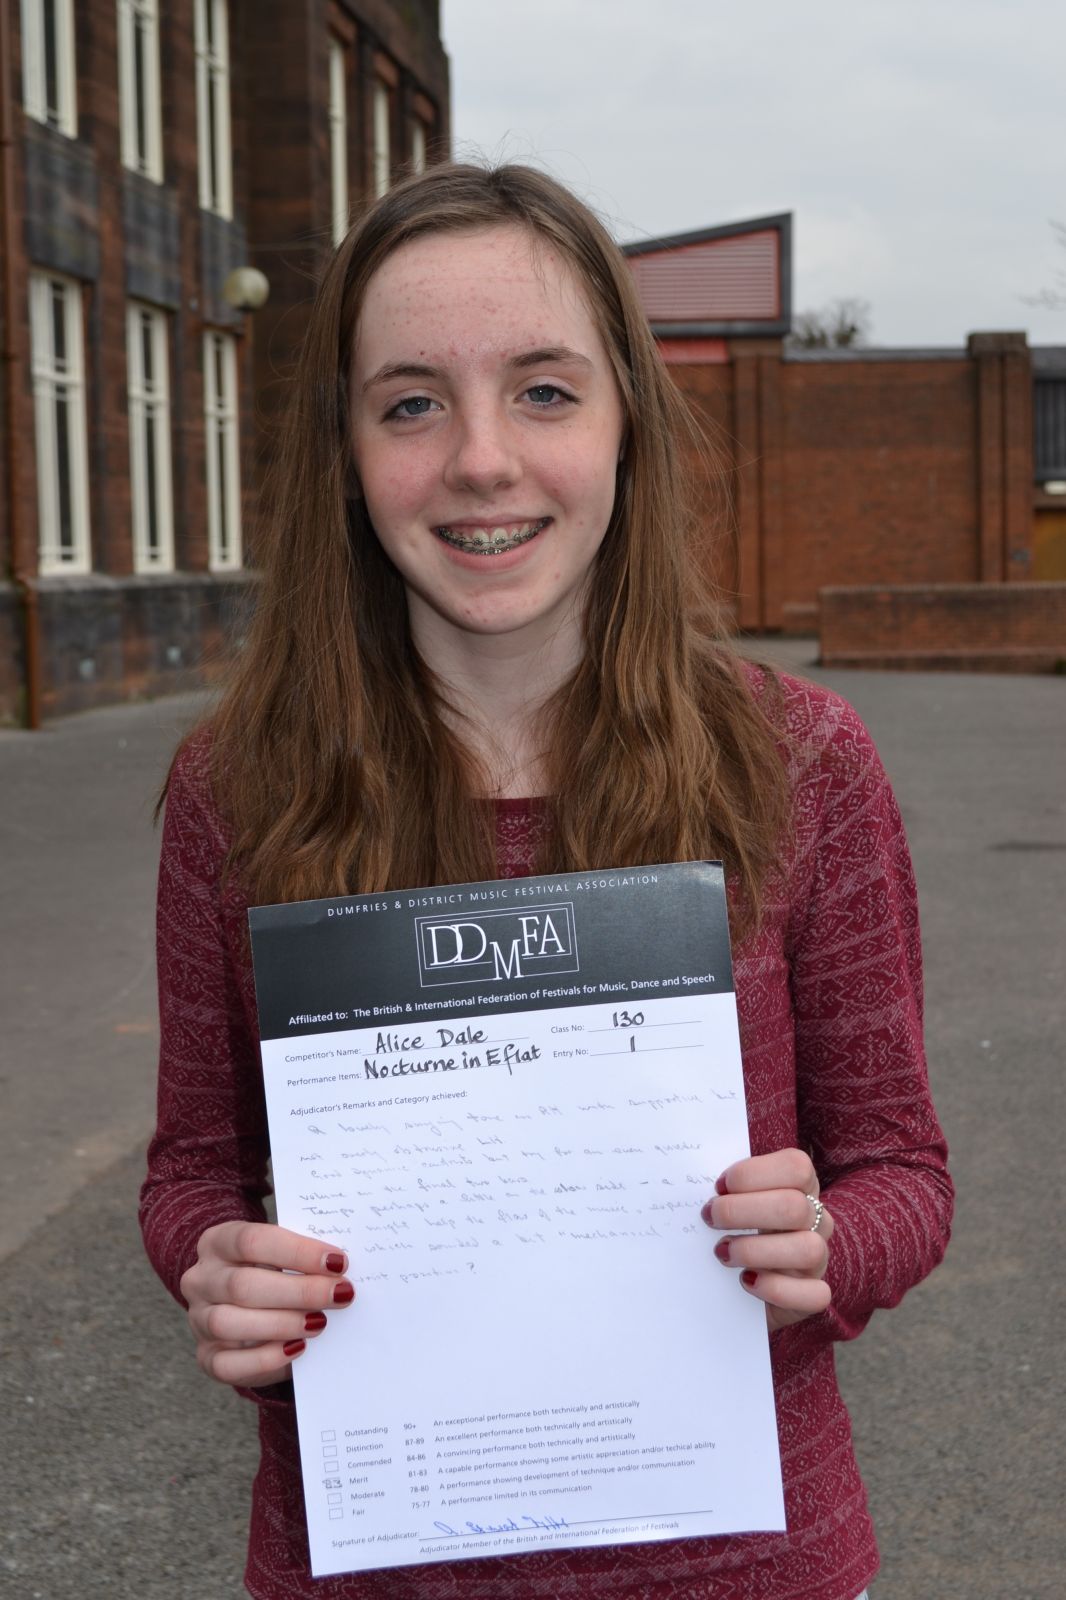 DUMFRIES & DISTRICT MUSIC FESTIVAL ASSOCIATION
DDMFA
Affiliated to: The British & International Federation of Festivals for Music, Dance and Speech
Competitor's Name: Alice Dale Class No: 130
Performance Items: Nocturne in E flat Entry No: 1
Adjudicator's Remarks and Category achieved:
A lovely singing tone in RH with supportive but
not overly obtrusive LH.
Good dynamic contrasts but try for an even quieter
volume in the final two bars.
Tempo perhaps a little on the slow side - a little
might help the flow of the music,
which sounded a bit "mechanical" at
Outstanding 90+ An exceptional performance both technically and artistically
Distinction 87-89 An excellent performance both technically and artistically
Commended 84-86 A convincing performance both technically and artistically
83 Merit 81-83 A capable performance showing some artistic appreciation and/or techical ability
Moderate 78-80 A performance showing development of technique and/or communication
Fair 75-77 A performance limited in its communication
Signature of Adjudicator:
Adjudicator Member of the British and International Federation of Festivals